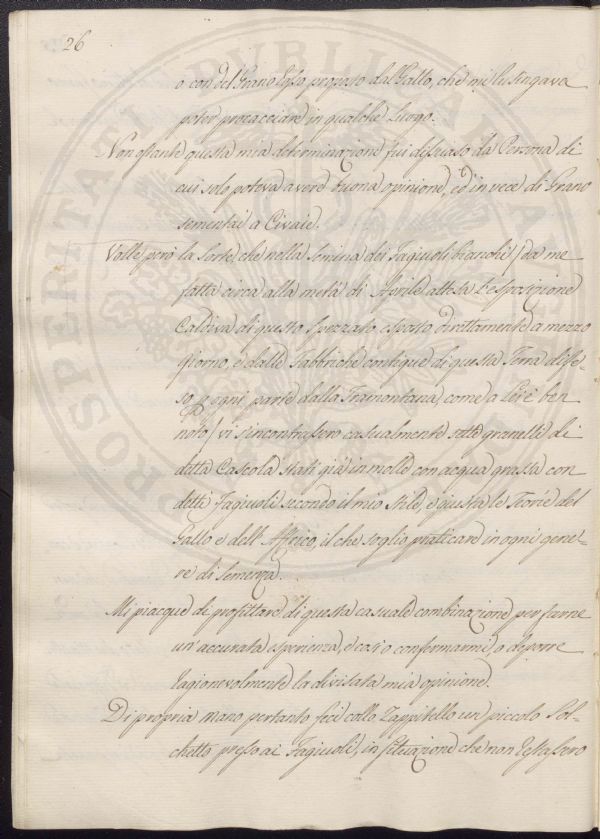 26
o con del Grano Esso proposto dal Gallo, che mi lusingava
poter procacciare in qualche Luogo.
Non ostante questa mia determinazione fui dissuaso da Persona di
cui solo poteva avere buona opinione, ed in vece di Grano
sementai a Civaie.
Volle però la Sorte, che nella Semina dei Fagiuoli bianchi / da me
fatta circa alla metà di Aprile attesa l'esposizione
Caldiva di questo Spezzato esposto direttamente a mezzo
giorno, e dalle Fabbriche contigue di questa Terra dife-
so p ogni parte dalla Tramontana, come a Lei è ben
noto / vi s'incontrassero casualmente sette granelli di
detta Cascola stati già in molle con acqua grassa con
detti Fagiuoli secondo il mio stile, e giusta le Teorie del
Gallo e dell'Affrico, il che soglio praticare in ogni gene-
re di Semenza.
Mi piacque di profittare di questa casuale combinazione per farne
un'accurata esperienza, e così o confermarmi, o deporre
ragionevolmente la divisata mia opinione.
Di propria mano pertanto feci collo Zappitello un piccolo Sol-
chetto presso ai Fagiuoli, in situazione che non restassero